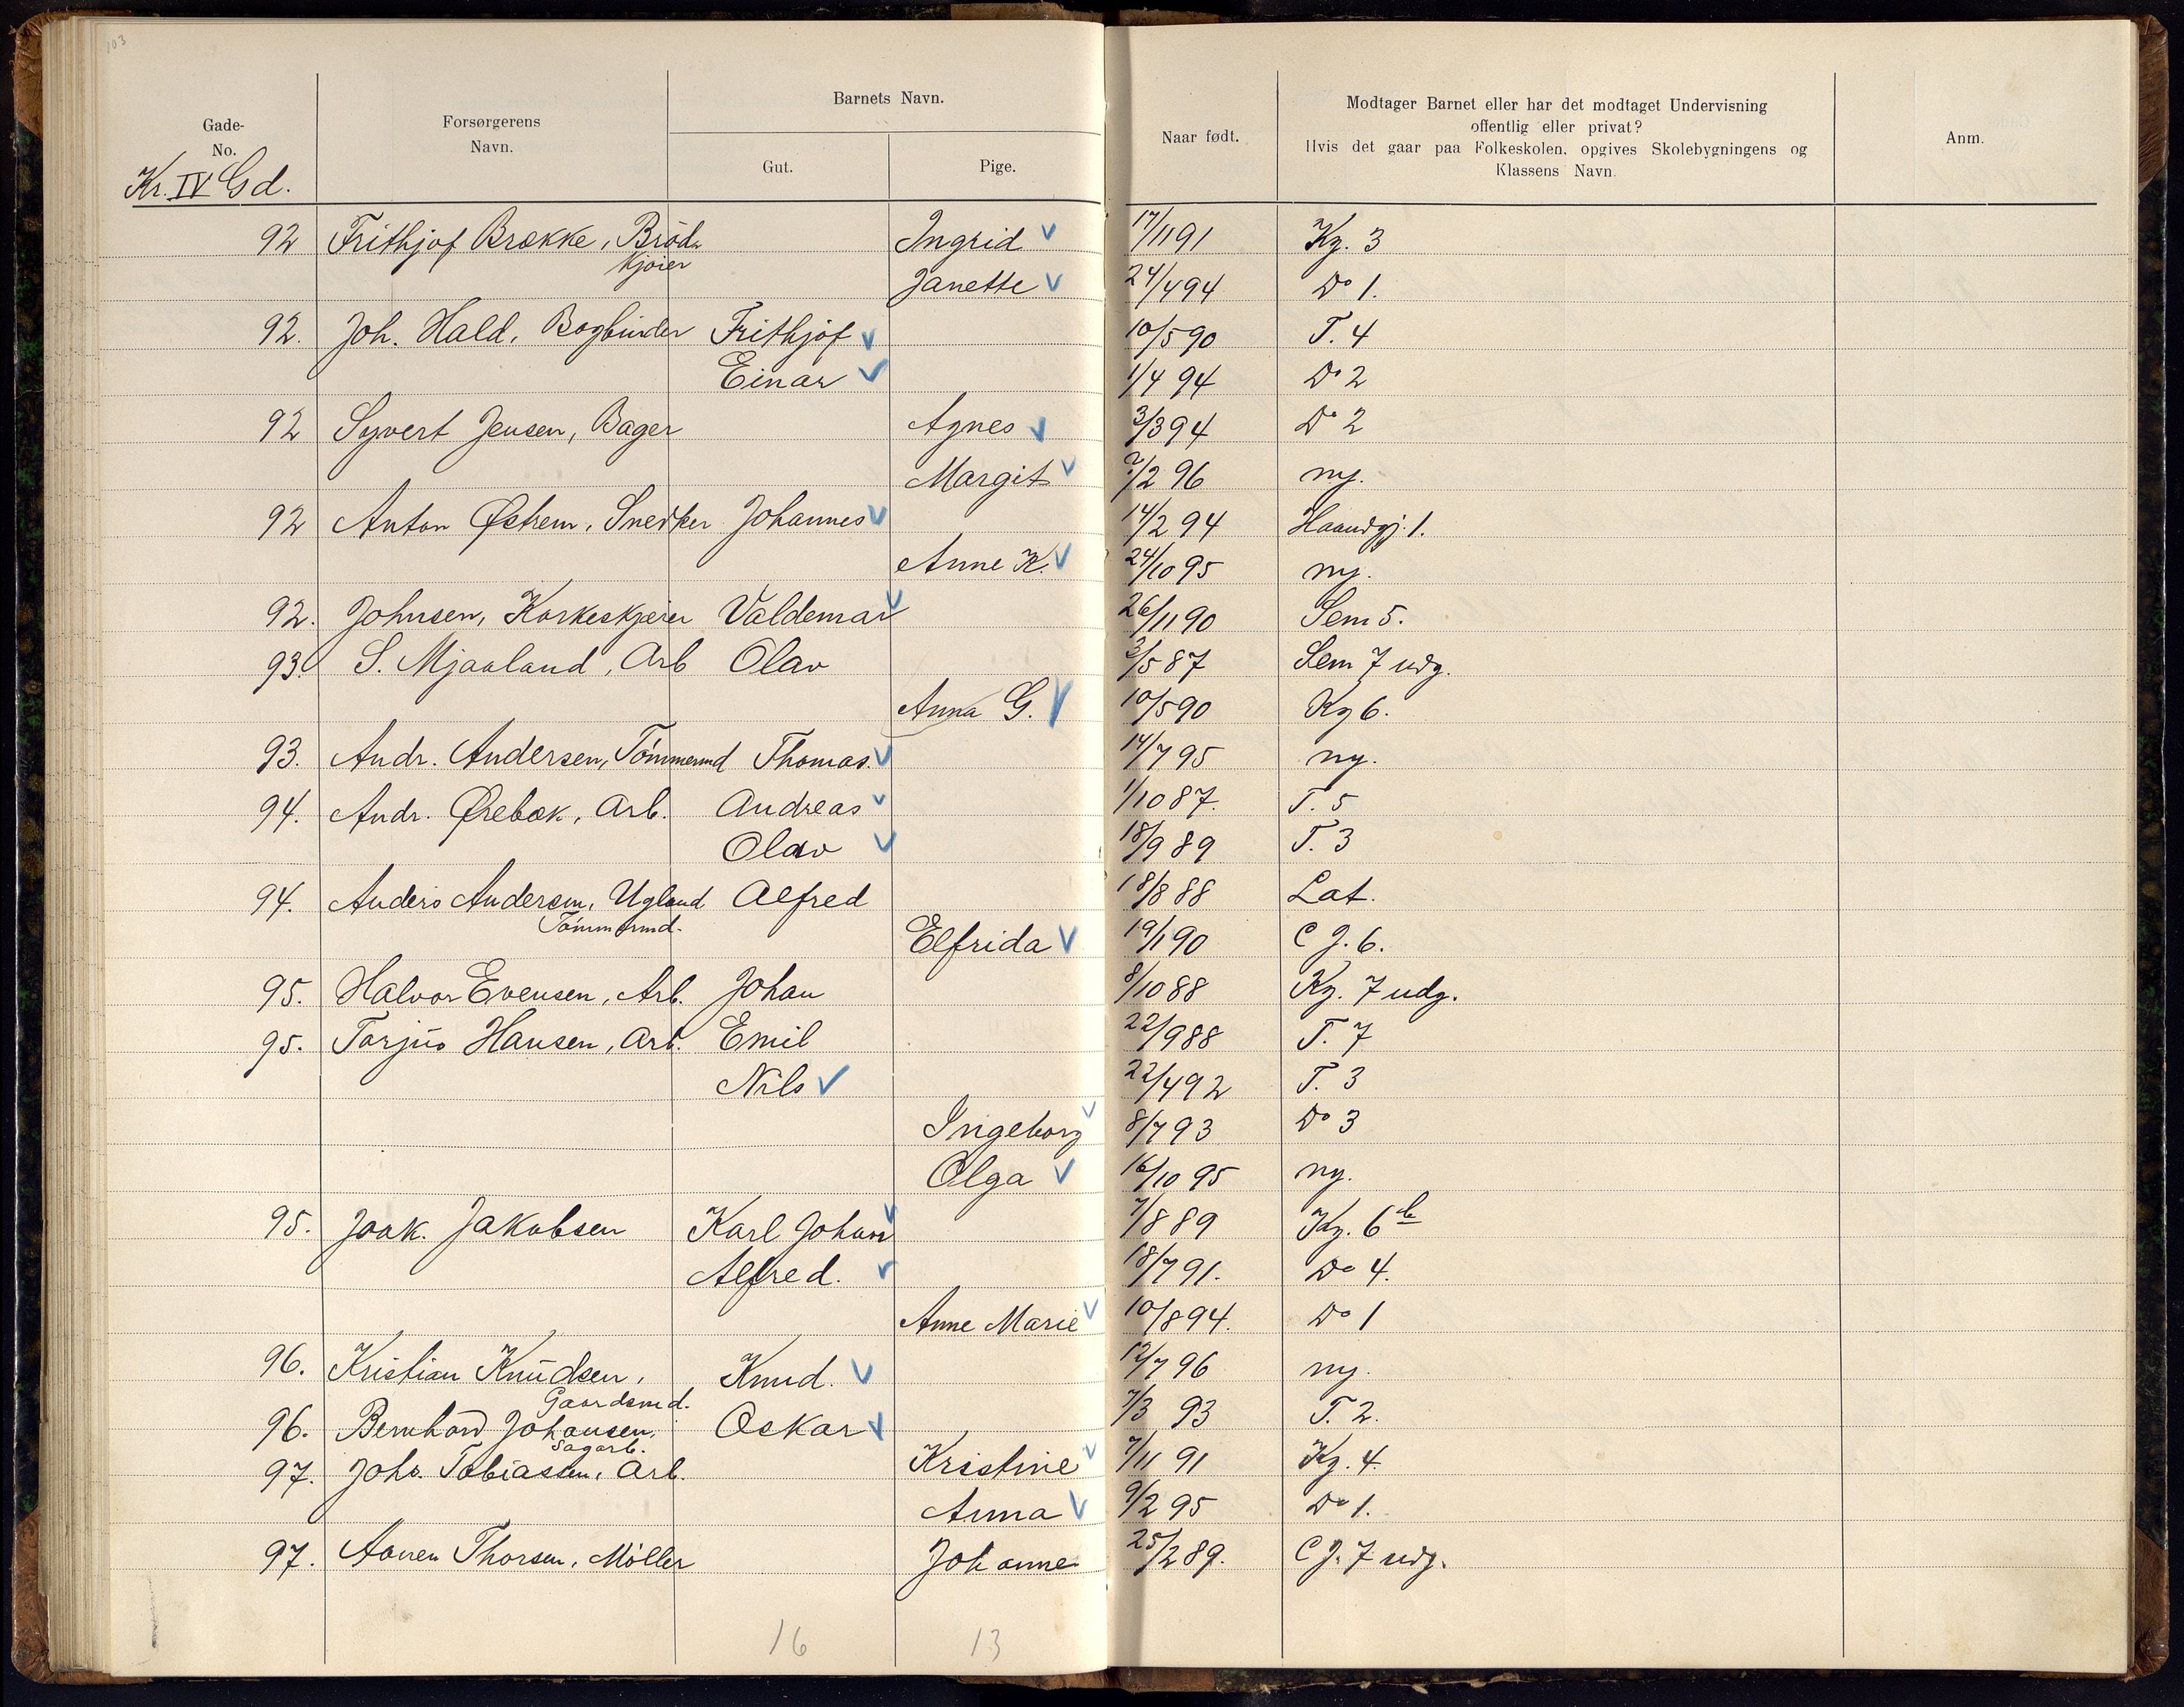 103
Gade-
No.
Forsørgerens
Navn.
Barnets Navn.
Gut.
Pige.
Naar født.
Modtager Barnet eller har det modtaget Undervisning
offentlig eller privat?
Hvis det gaar paa Folkeskolen, opgives Skolebygningens og
Klassens Navn.
Anm.
Kr. IV Gd.
92 Frithjof Brække, Bröd- Ingrid 17/11 91 Kg. 3
kjøier Janette 24/4 94 Do 1.
92. Joh. Hald, Bogbinder Frithjof 10/5 90 T. 4
Einar 1/4 94 Do 2
92 Syvert Jensen, Bager Agnes 3/3 94 Do 2
Margit 7/2 96 ny.
92 Anton Østrem, Snedker Johannes 14/2 94 Haandgj. 1.
Anne K. 24/10 95 ny.
92. Johnsen, Korkeskjærer Valdemar 26/11 90 Sem 5.
93. S. Mjaaland, Arb Olav 3/5 87 Sem 7 udg.
Anna G. 10/5 90 Kg 6.
93. Andr. Andersen, Tömmermd Thomas. 14/7 95 ny.
94. Andr. Ørebæk, Arb. Andreas 1/10 87. T. 5
Olav 18/9 89 T. 3
94. Anders Andersen, Ugland Alfred 18/8 88 Lat.
Tömmermd. Elfrida 19/1 90 C J. 6.
95. Halvor Evensen, Arb. Johan 8/10 88 Kg. 7 udg.
95. Torjus Hansen, Arb. Emil 22/9 88 T. 7
Nils 22/4 92 T. 3
Ingeborg 8/7 93 Do 3
Olga 16/10 95 ny.
95. Joak. Jakobsen Karl Johan 7/8 89 Kg. 6 b
Alfred. 18/7 91. Do 4.
Anne Marie 10/8 94. Do 1
96. Kristian Knudsen, Knud. 12/7 96 ny.
Gaardsmd.
96. Bernhard Johansen, Oskar 7/3 93 T. 2.
Sagarb.
97. Johs. Tobiassen, Arb. Kristine 7/11 91 Kg. 4.
Anna 9/2 95 Do 1.
97. Aanen Thorsen, Möller Johanne 25/2 89. C J. 7 udg.
16 13